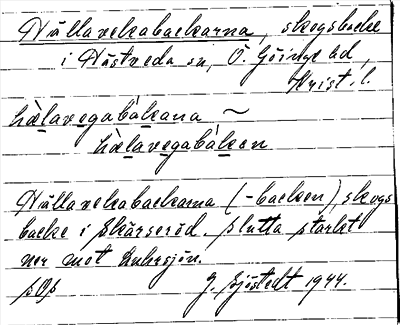 Hällavekabackarna, skogsbacke
i Hästveda sn, Ö. Göinge hd,
Krist. l.
hèlavegabàkana ~
hèlavegabàken
Hällavekabackarna (-backen), skogs
backe i Skärseröd. Slutta starkt
ner mot Luhrsjön.
G. Sjöstedt 1944.